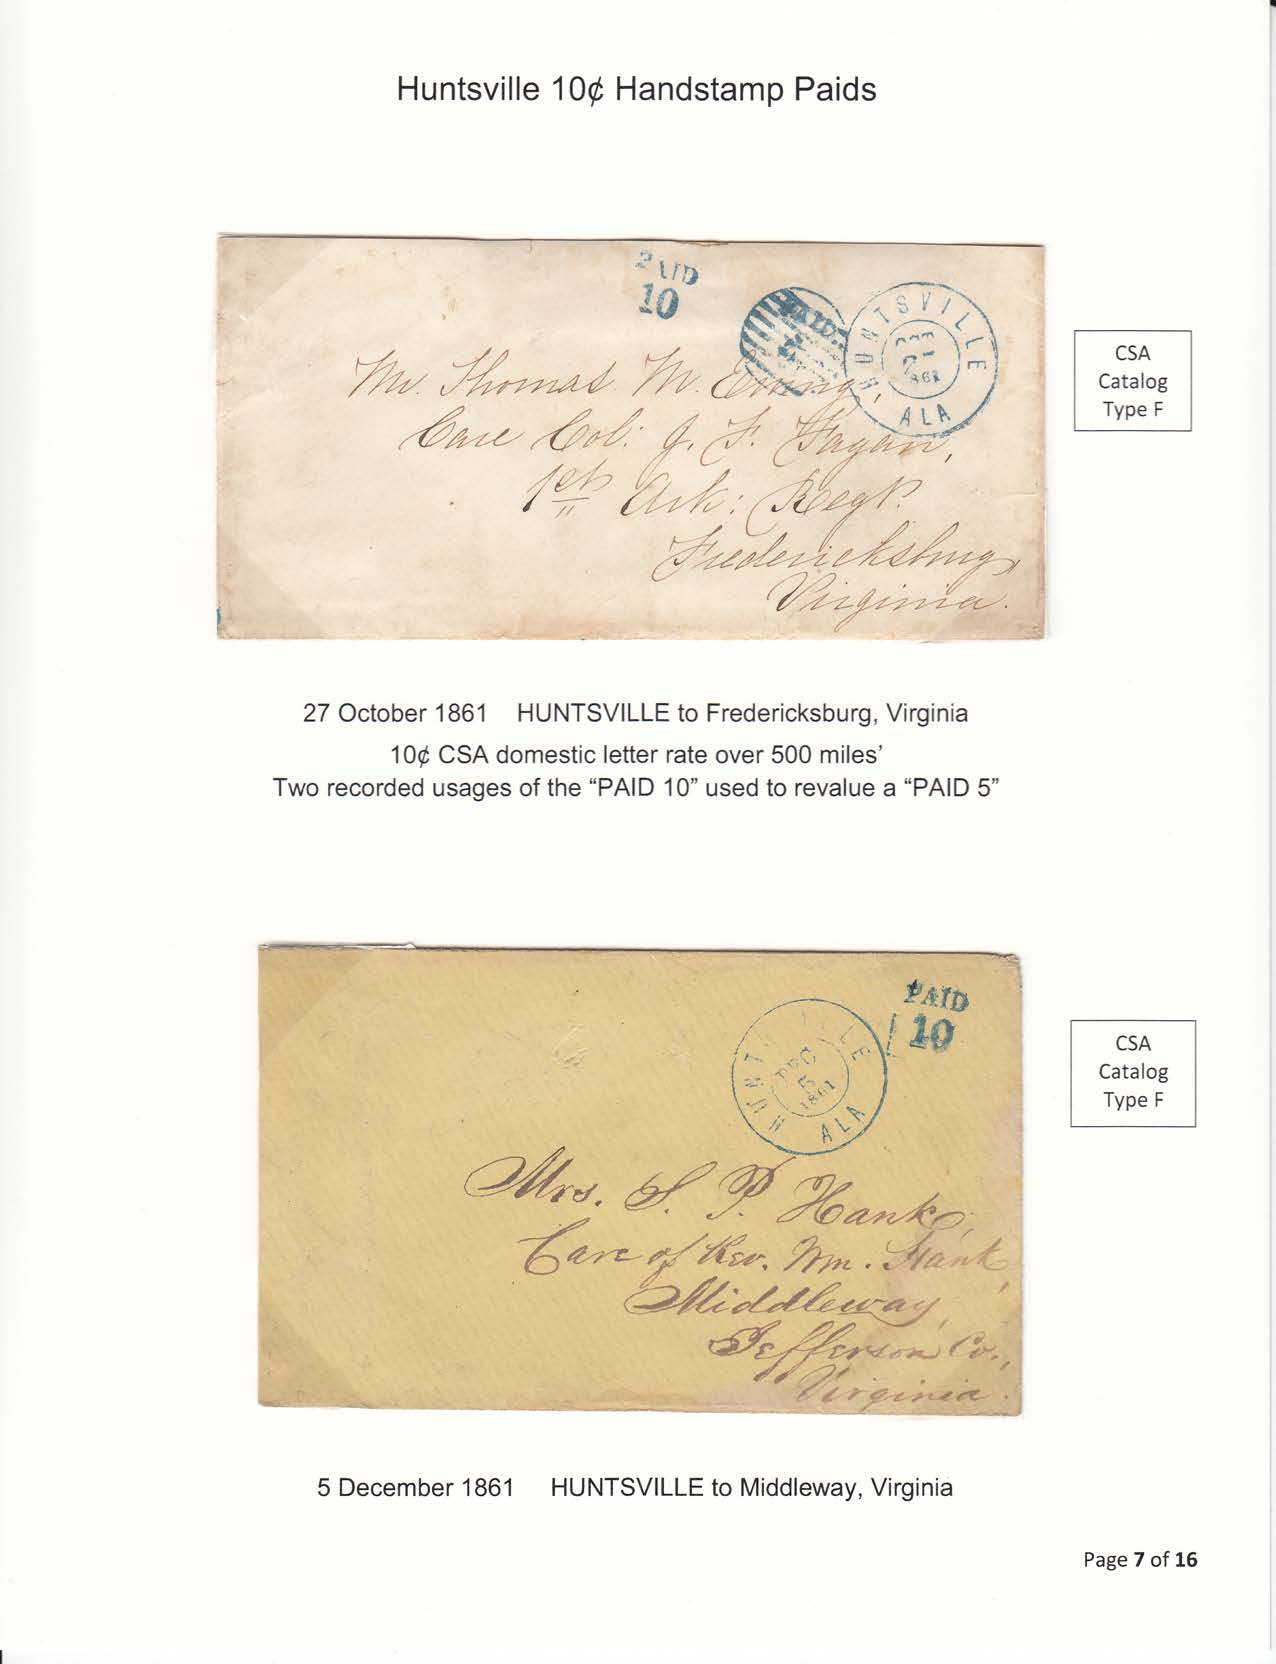 Huntsville 10¢ Handstamp Paids
PAID
10
PAID
HUNTSVILLE
OCT
1861
ALA
Mr. Thomas M. Ewing,
Care Col: J. F. Fagan,
1st Ark: Regt.
Fredericksburg,
Virginia.
CSA
Catalog
Type F
27 October 1861 HUNTSVILLE to Fredericksburg, Virginia
10¢ CSA domestic letter rate over 500 miles’
Two recorded usages of the “PAID 10” used to revalue a “PAID 5”
PAID
10
HUNTSVILLE
DEC
5
1861
ALA
Mrs. S. P. Hank,
Care of Rev. Wm. Hank,
Middleway,
Jefferson Co.,
Virginia.
CSA
Catalog
Type F
5 December 1861 HUNTSVILLE to Middleway, Virginia
Page 7 of 16